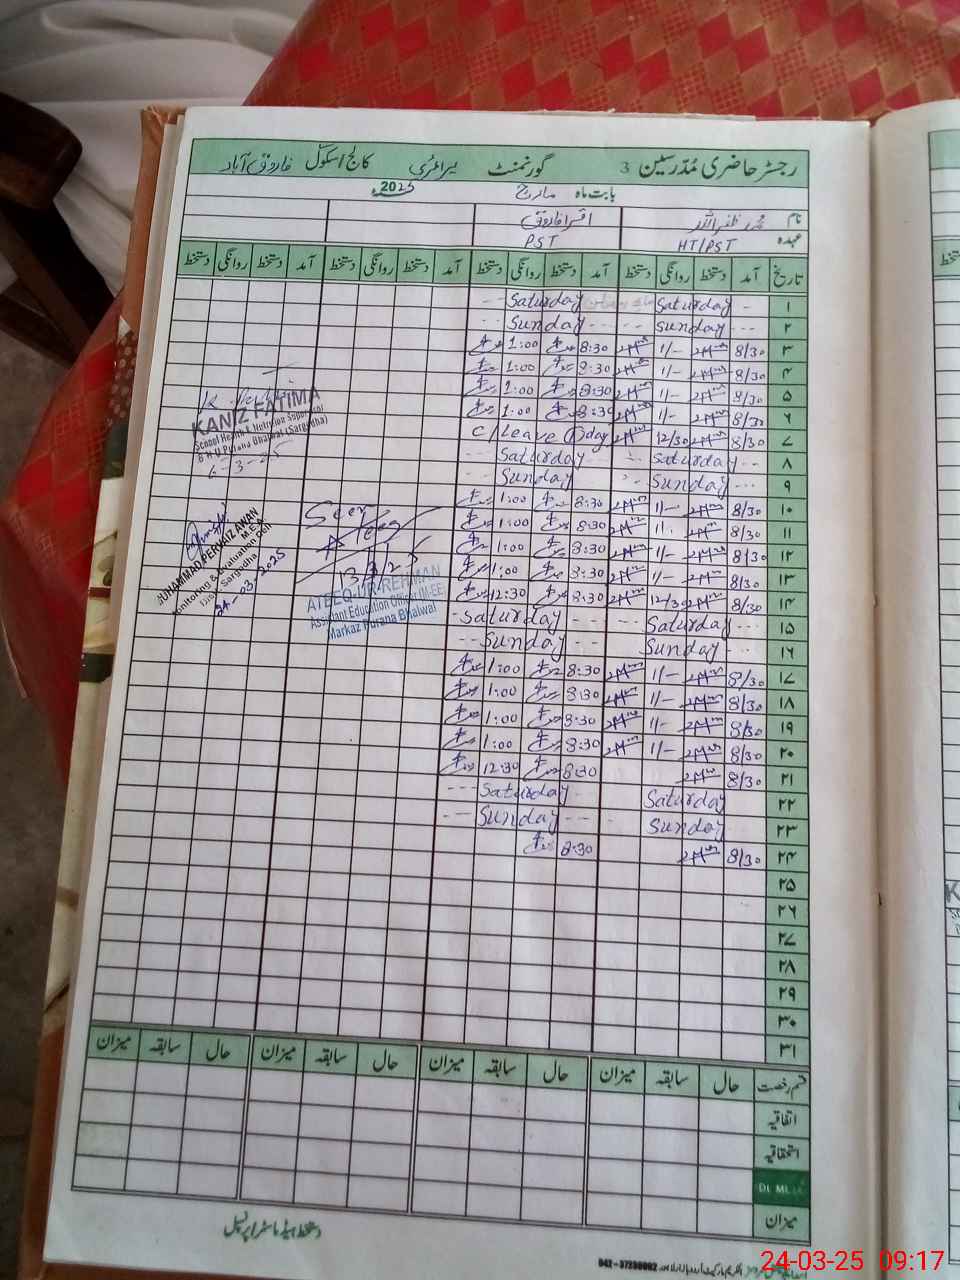 رجسٹر حاضری مُدّرسین 3 گورنمنٹ پرائمری کالج اسکول فاروق آباد
بابت ماہ مارچ 2025
نام
عہدہ HT/PST PST
تاریخ آمد دستخط روانگی دستخط آمد دستخط روانگی دستخط آمد دستخط روانگی دستخط آمد دستخط روانگی دستخط
۱ Saturday Saturday
۲ Sunday Sunday
۳ 8/30 1/- 8:30 1:00
۴ 8/30 1/- 8:30 1:00
۵ 8/30 1/- 8:30 1:00
۶ 8/30 1/- 8:30 1:00
۷ 8/30 12/30 C/Leave 1 day
۸ Saturday Saturday
۹ Sunday Sunday
۱۰ 8/30 1/- 8:30 1:00
۱۱ 8/30 8:30 1:00
۱۲ 8/30 1/- 8:30 1:00
۱۳ 8/30 1/- 8:30 1:00
۱۴ 8/30 12/30 8:30 12:30
۱۵ Saturday Saturday
۱۶ Sunday Sunday
۱۷ 8/30 1/- 8:30 1:00
۱۸ 8/30 1/- 8:30 1:00
۱۹ 8/30 1/- 8:30 1:00
۲۰ 8/30 1/- 8:30 1:00
۲۱ 8/30 8:30 12:30
۲۲ Saturday Saturday
۲۳ Sunday Sunday
۲۴ 8/30 8:30
۲۵
۲۶
۲۷
۲۸
۲۹
۳۰
۳۱
KANIZ FATIMA
School Health & Nutrition Supervisor
B H U Purana Bhalwal (Sargodha)
6-3-25
MUHAMMAD PERVAIZ AWAN
M.E.A
Monitoring & Evaluation Cell
Sargodha
24-03-2025
Seen
13/3/25
ATEEQ-UR-REHMAN
Assistant Education Officer (M-EE)
Markaz Purana Bhalwal
قسم رخصت حال سابقہ میزان حال سابقہ میزان حال سابقہ میزان حال سابقہ میزان
اتفاقیہ
استحقاقیہ
میزان
دستخط ہیڈ ماسٹر/پرنسپل
24-03-25 09:17